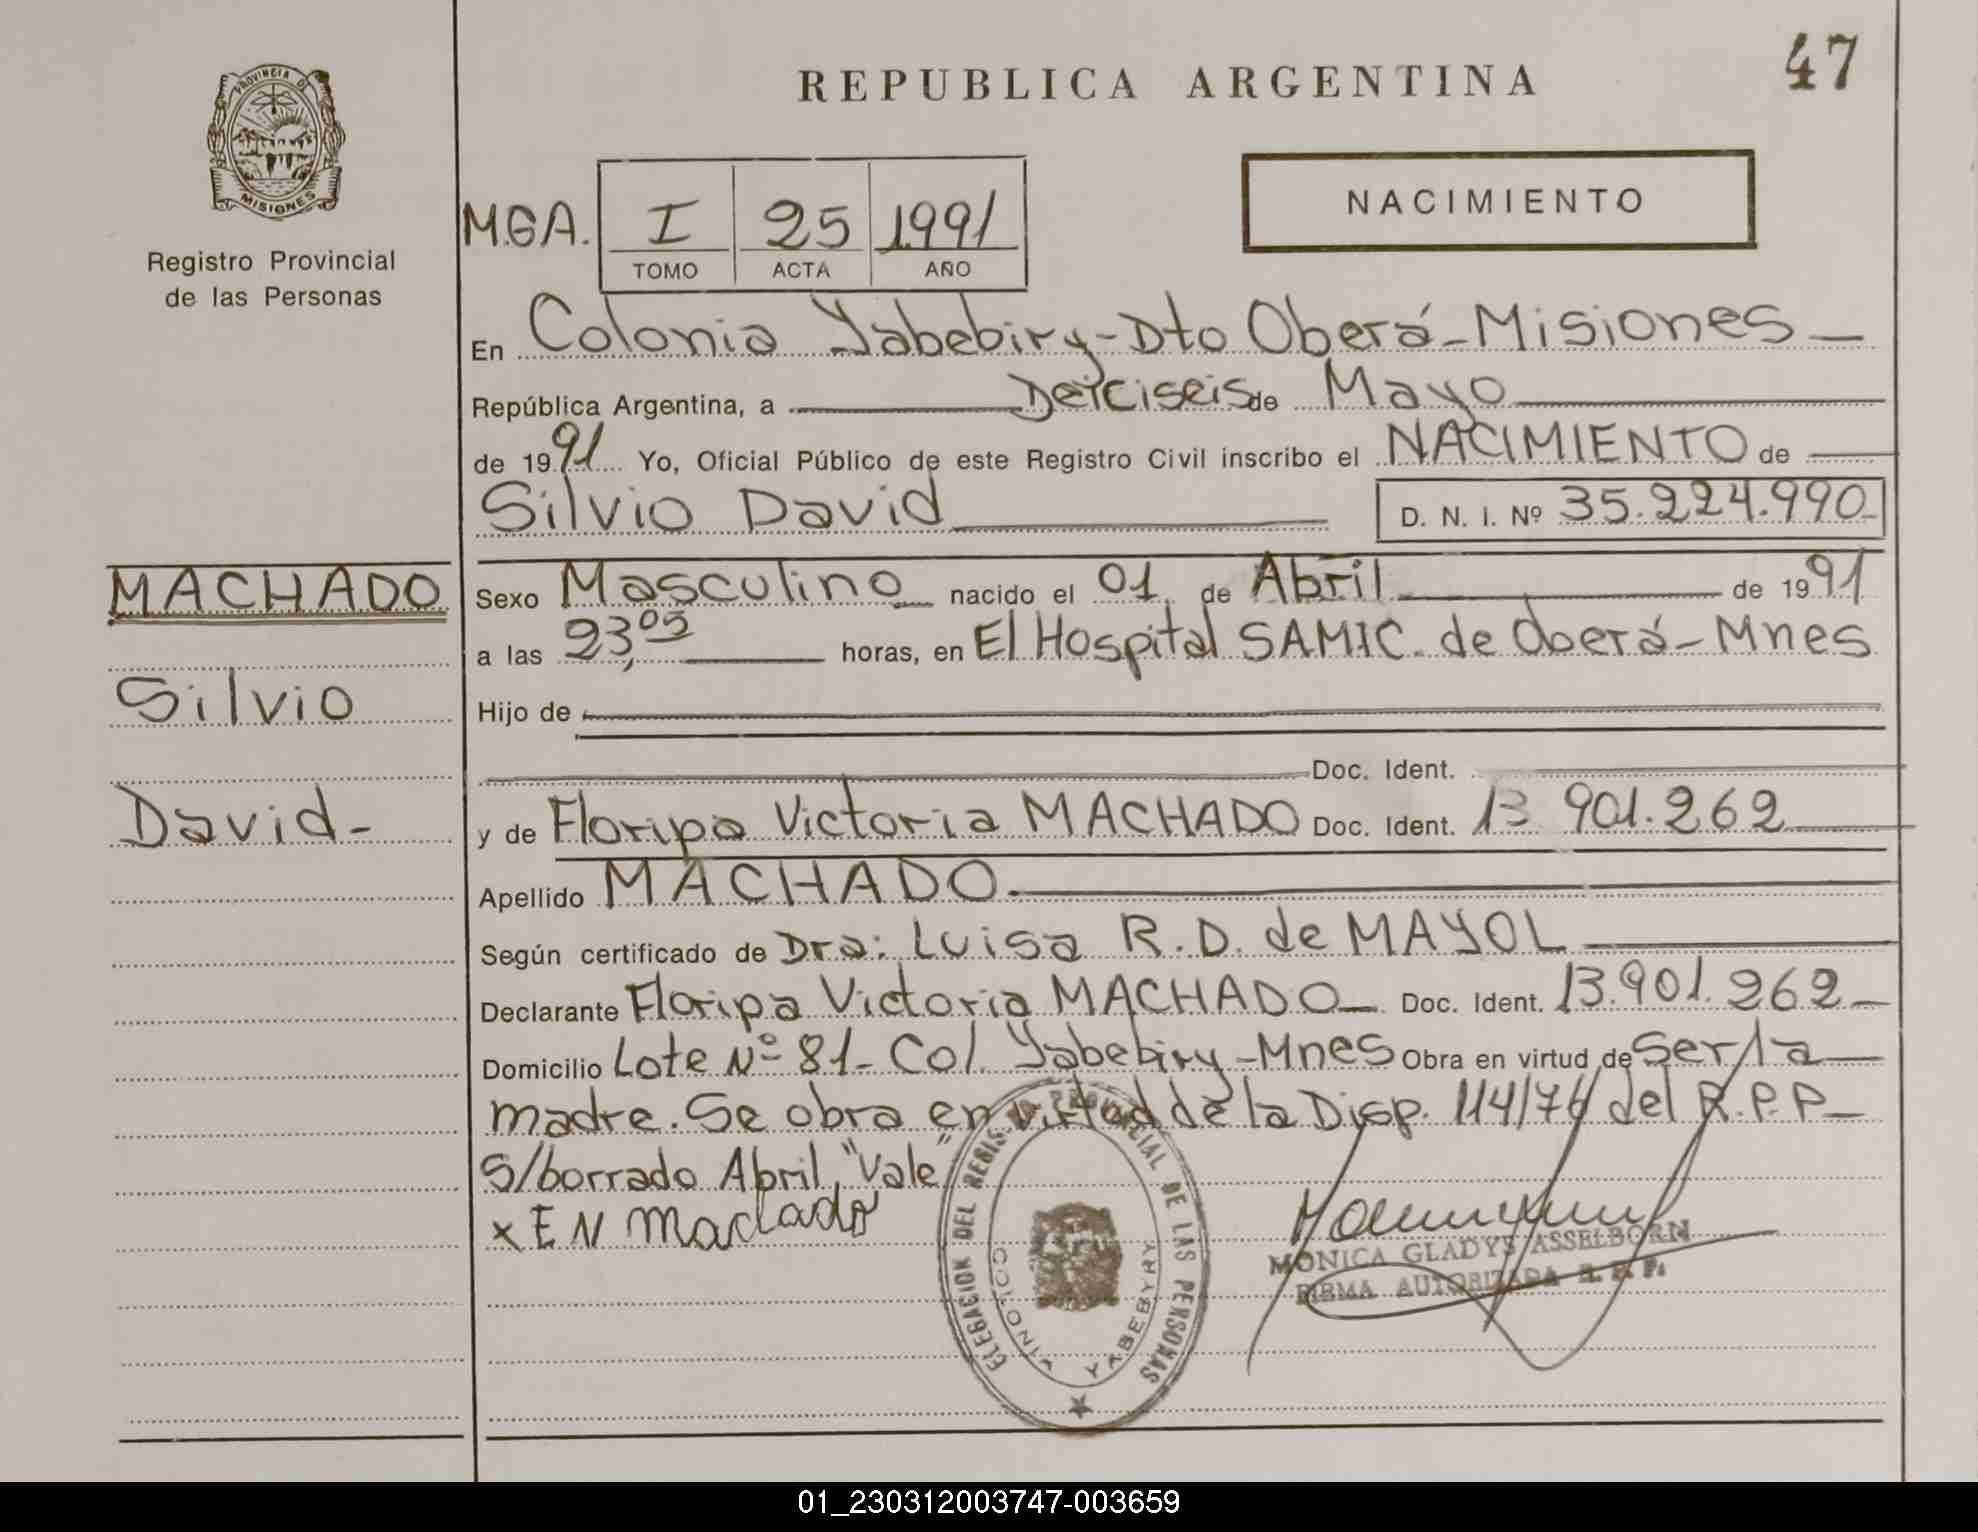 47
REPUBLICA ARGENTINA
PROVINCIA DE
MISIONES
Registro Provincial
de las Personas
NACIMIENTO
M.G.A. I 25 1991
TOMO ACTA AÑO
En Colonia Yabebiry-Dto Oberá-Misiones
República Argentina, a Deiciseis de Mayo
de 1991 Yo, Oficial Público de este Registro Civil inscribo el NACIMIENTO de
Silvio David D. N. I. Nº 35.224.990
MACHADO
Silvio
David-
Sexo Masculino nacido el 01 de Abril de 1991
a las 23,05 horas, en El Hospital SAMIC. de Oberá-Mnes
Hijo de
Doc. Ident.
y de Floripa Victoria MACHADO Doc. Ident. 13 901.262
Apellido MACHADO
Según certificado de Dra: Luisa R.D. de MAYOL
Declarante Floripa Victoria MACHADO Doc. Ident. 13.901.262
Domicilio Lote Nº 81- Col. Yabebiry-Mnes Obra en virtud de Ser la
madre. Se obra en virtud de la Disp. 114/76 del R.P.P
S/borrado Abril "Vale"
x EN Machado
DELEGACION DEL REGISTRO PROVINCIAL DE LAS PERSONAS
COLONIA YABEBYRY
MONICA GLADYS ASSELBORN
FIRMA AUTORIZADA R. P. P.
01_230312003747-003659